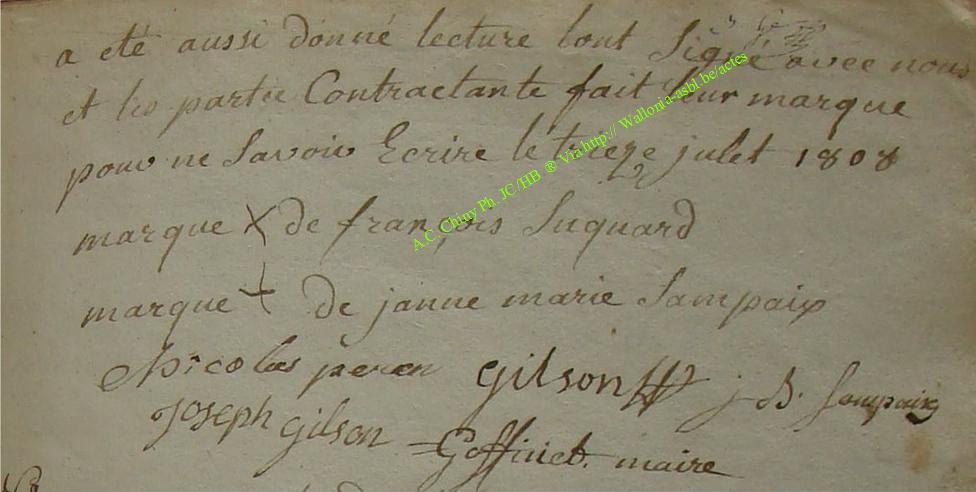 a eté aussi donné lecture lont Signé avec nous
et les partie Contractante fait leur marque
pour ne Savoir Ecrire le trieze julet 1808
marque X de françois Suquard
marque + de janne marie Sampaix
Nicolas peren Gilson J B. Sampaix
Joseph Gilson Goffinet. maire
A.C. Chiny Ph. JC/HB ® Via http:// Wallonia-asbl.be/actes